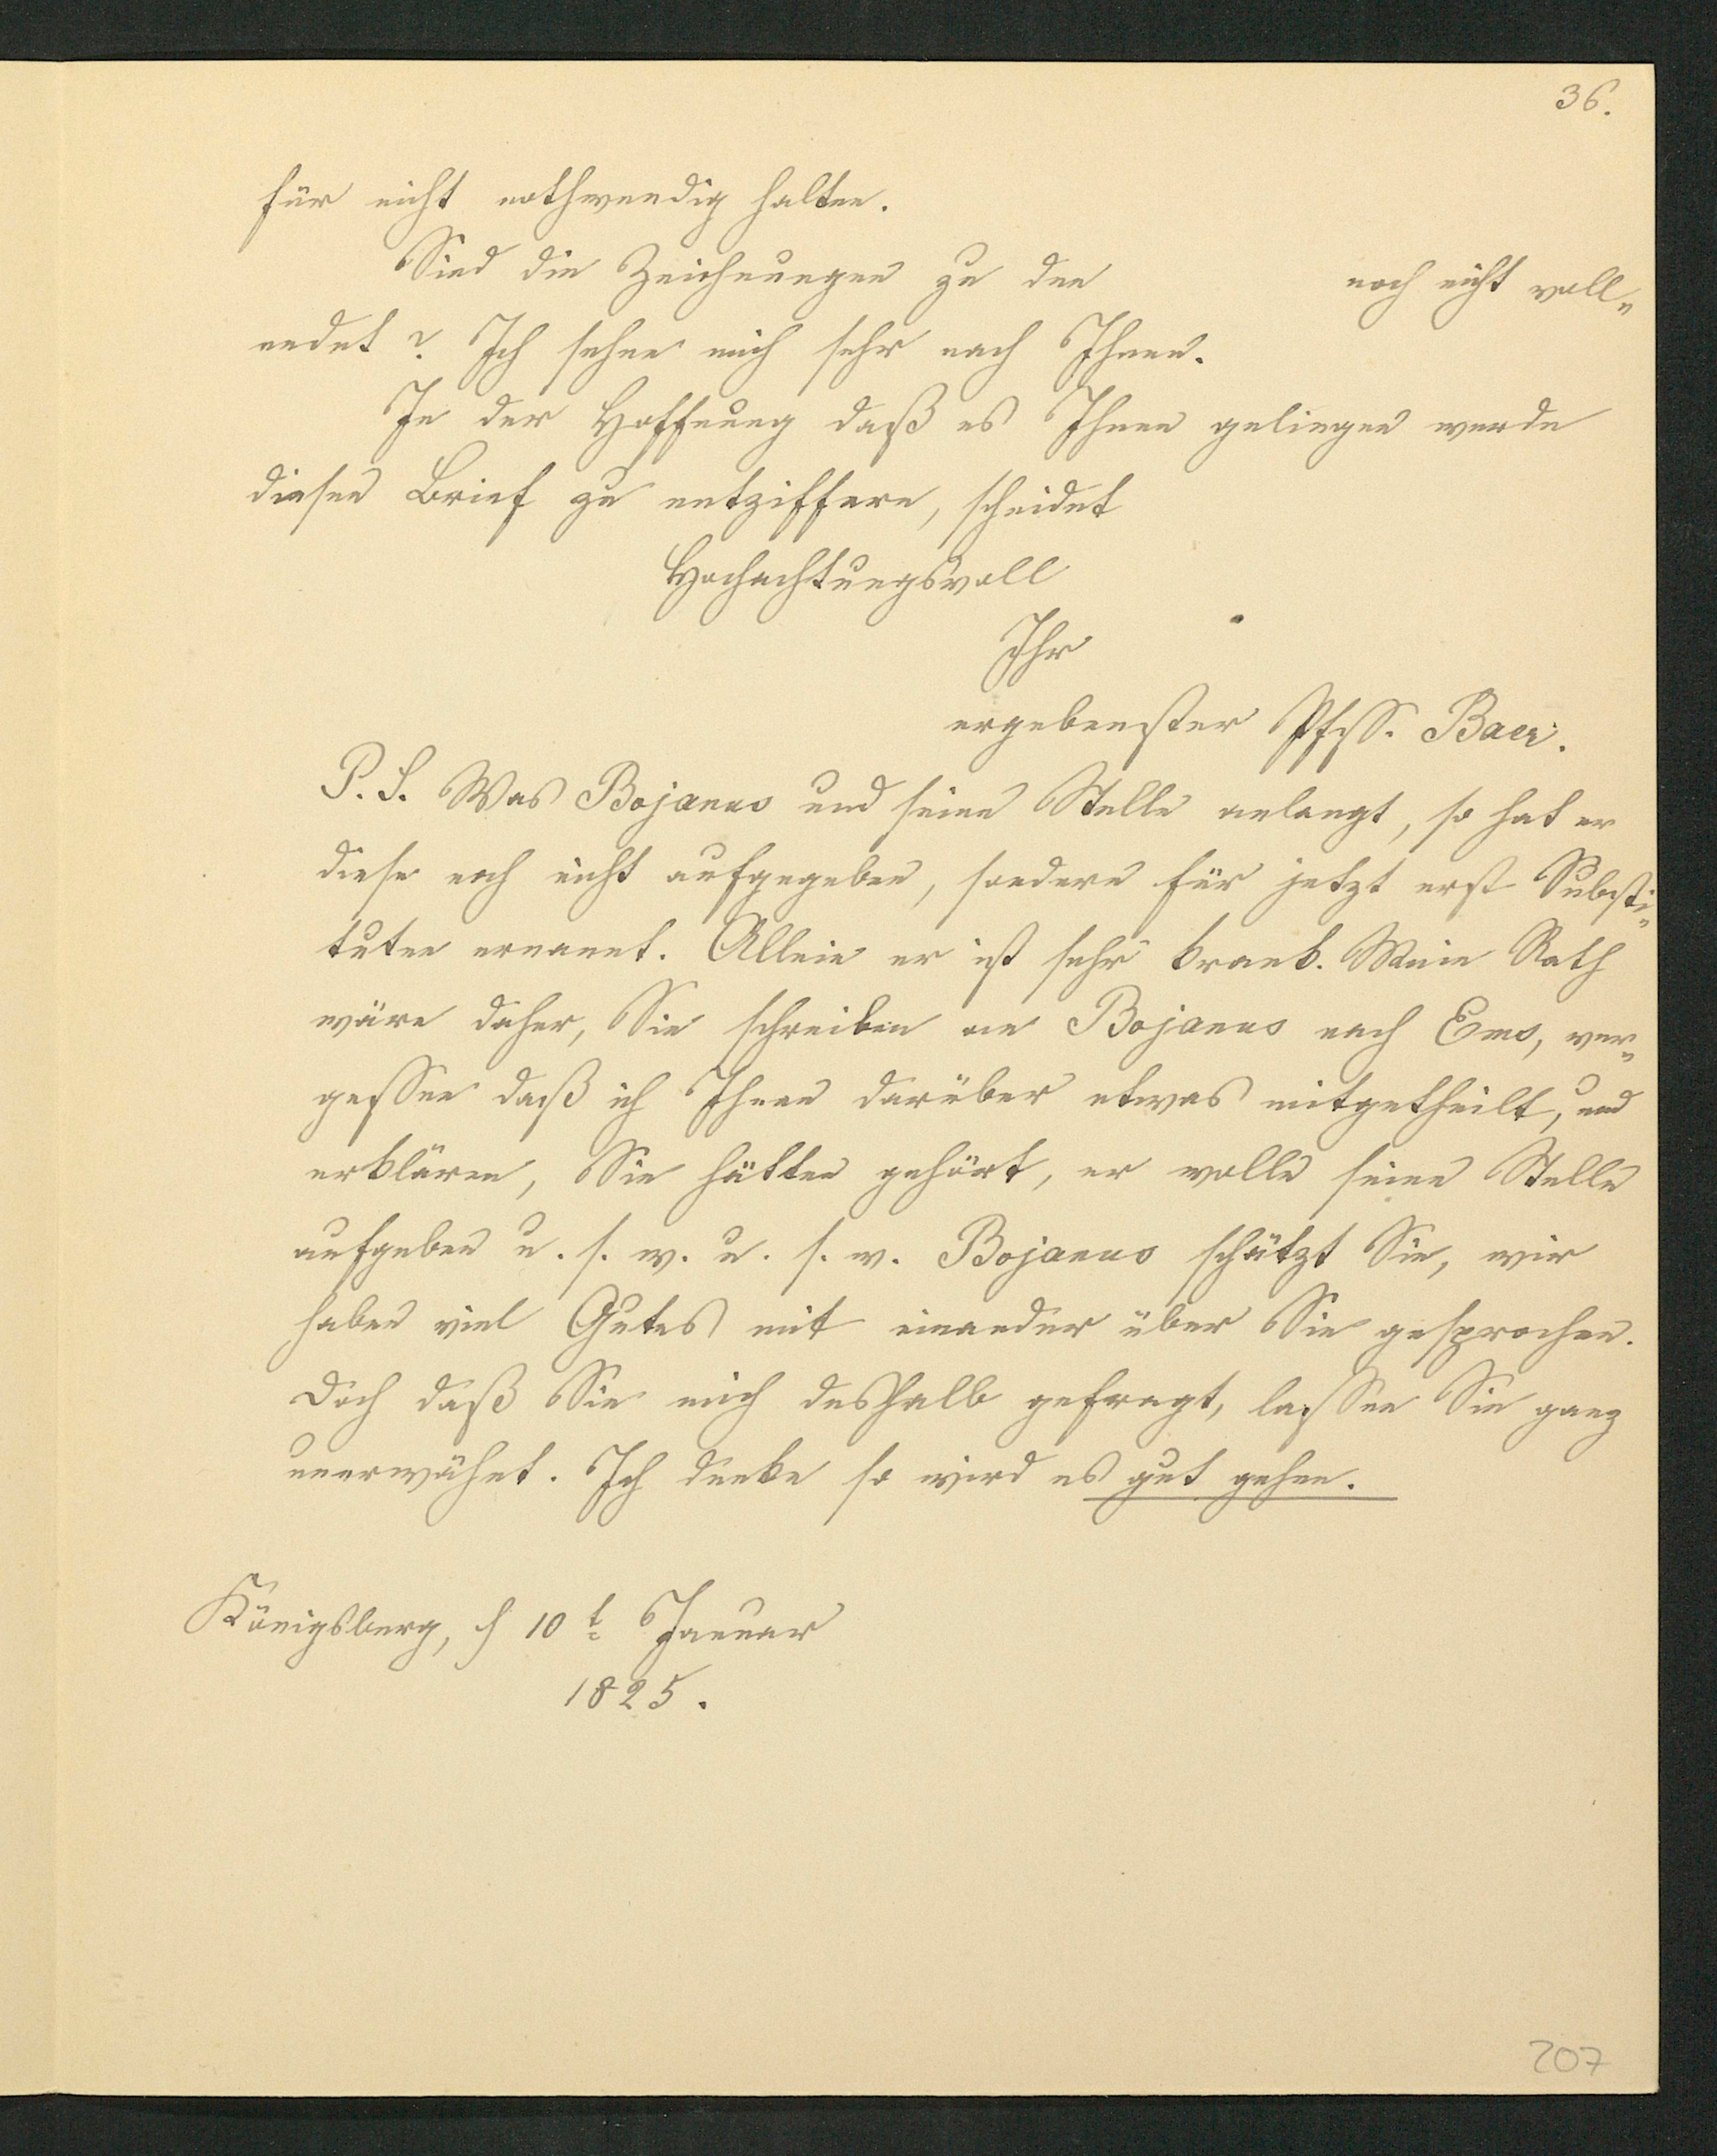 36.
für nicht nothwendig halten.
Sind die Zeichnungen zu den noch nicht voll-
endet? Ich sehne mich sehr nach Ihnen.
In der Hoffnung daß es Ihnen gelingen werde
diesen Brief zu entziffern, scheidet
Hochachtungsvoll
Ihr
ergebenster Pfss. Baer.
P. S. Was Bojanus und seine Stelle anlangt, so hat er
diese noch nicht aufgegeben, sondern für jetzt erst Substi-
tuten ernannt. Allein er ist sehr krank. Mein Rath
wäre daher, Sie schreiben an Bojanus nach Ems, ver-
gessen daß ich Ihnen darüber etwas mitgetheilt, und
erklären, Sie hätten gehört, er wolle seine Stelle
aufgeben u. s. w. u. s. w. Bojanus schätzt Sie, wir
haben viel Gutes mit einander über Sie gesprochen.
Doch daß Sie mich deshalb gefragt, lassen Sie ganz
unerwähnt. Ich denke so wird es gut gehen.
Königsberg, d 10t Januar
1825.
207